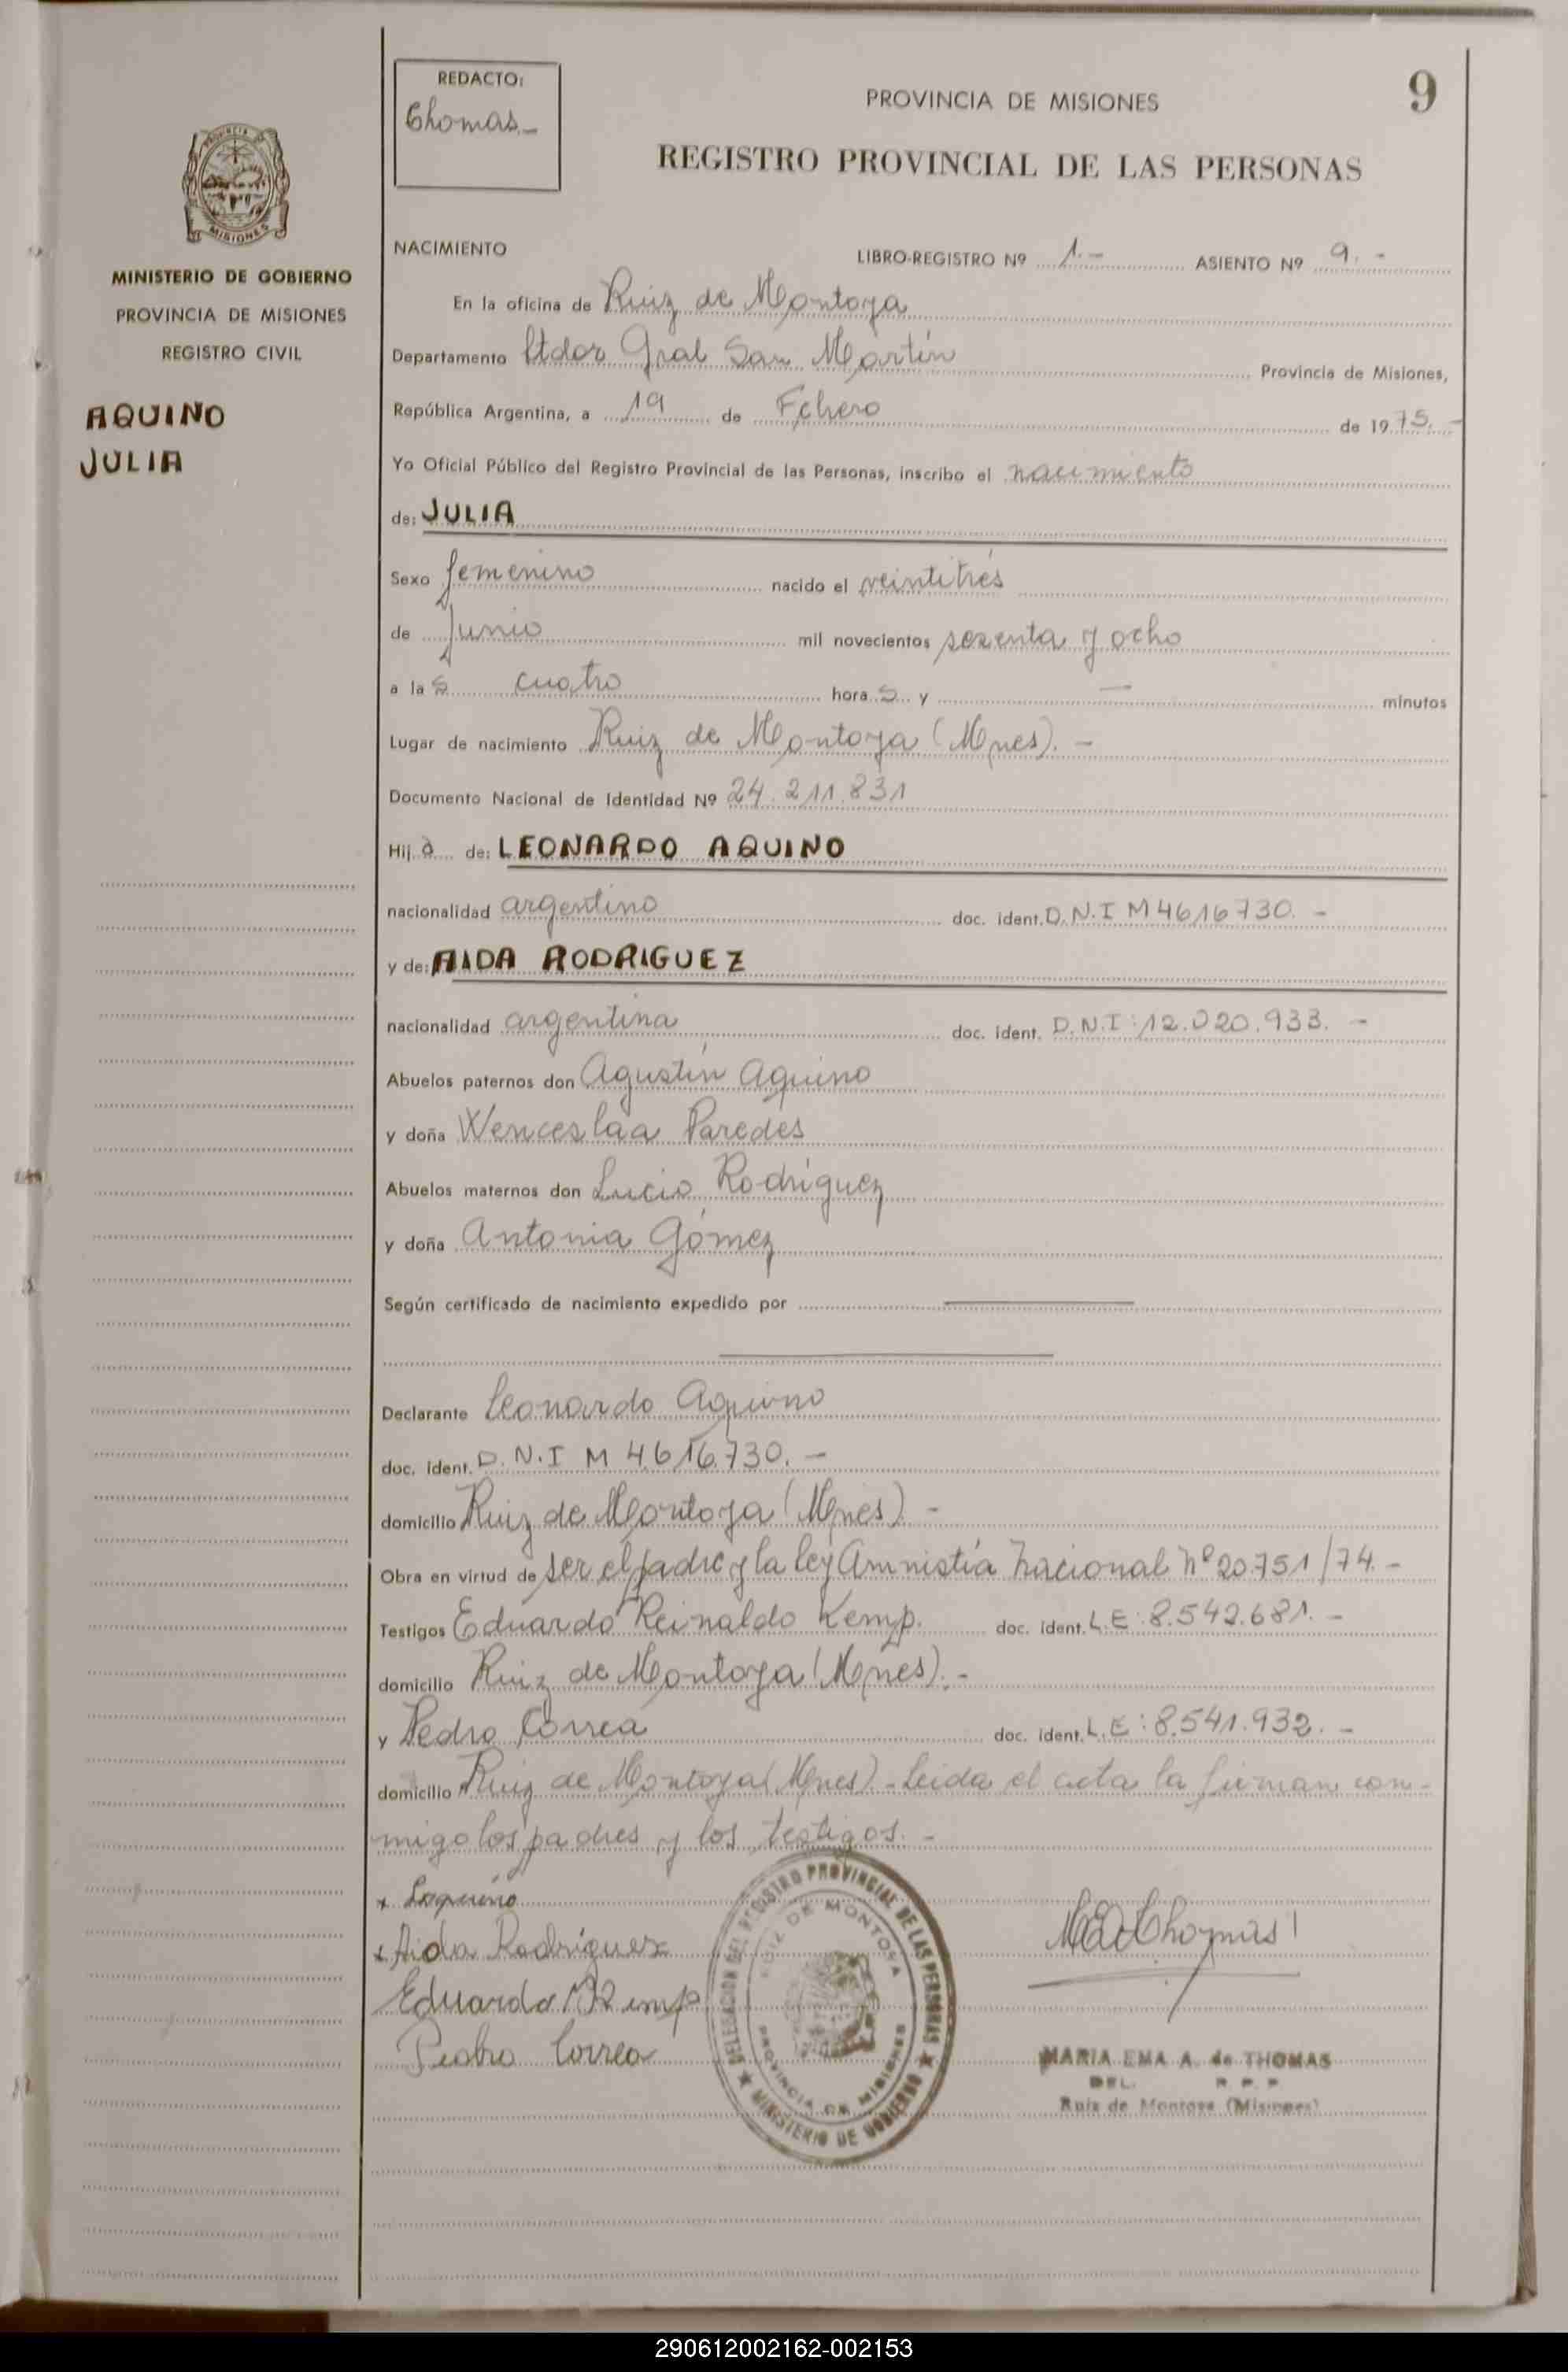 REDACTO:
Thomas.-
PROVINCIA DE MISIONES
9
REGISTRO PROVINCIAL DE LAS PERSONAS
PROVINCIA DE
MISIONES
MINISTERIO DE GOBIERNO
PROVINCIA DE MISIONES
REGISTRO CIVIL
AQUINO
JULIA
NACIMIENTO LIBRO-REGISTRO Nº 1.- ASIENTO Nº 9.-
En la oficina de Ruiz de Montoya
Departamento Ltdor Gral San Martín Provincia de Misiones,
República Argentina, a 19 de Febrero de 1975.-
Yo Oficial Público del Registro Provincial de las Personas, inscribo el nacimiento
de: JULIA
Sexo femenino nacido el veintitrés
de Junio mil novecientos sesenta y ocho
a las cuatro horas y — minutos
Lugar de nacimiento Ruiz de Montoya (Mnes).-
Documento Nacional de Identidad Nº 24.211.831
Hija de: LEONARDO AQUINO
nacionalidad argentino doc. ident. D.N.I M4616730.-
y de: AIDA RODRIGUEZ
nacionalidad argentina doc. ident. D.N.I:12.020.933.-
Abuelos paternos don Agustín Aquino
y doña Wenceslaa Paredes
Abuelos maternos don Lucio Rodríguez
y doña Antonia Gómez
Según certificado de nacimiento expedido por
Declarante Leonardo Aquino
doc. ident. D.N.I M 4616.730.-
domicilio Ruiz de Montoya (Mnes).-
Obra en virtud de ser el padre y la ley Amnistía Nacional Nº 20.751/74.-
Testigos Eduardo Reinaldo Kemp. doc. ident. L.E:8.542.681.-
domicilio Ruiz de Montoya (Mnes).-
y Pedro Correa doc. ident. L.E:8.541.932.-
domicilio Ruiz de Montoya (Mnes).-Leida el acta la firman con-
migo los padres y los testigos.-
x Laquino
x Aida Rodríguez
Eduardo R Kemp
Pedro Correa
DELEGACION DEL REGISTRO PROVINCIAL DE LAS PERSONAS
RUIZ DE MONTOYA
PROVINCIA DE MISIONES
★ MINISTERIO DE GOBIERNO ★
MEAdeThomas
MARIA EMA A. de THOMAS
DEL. R. P. P.
Ruiz de Montoya (Misiones)
290612002162-002153